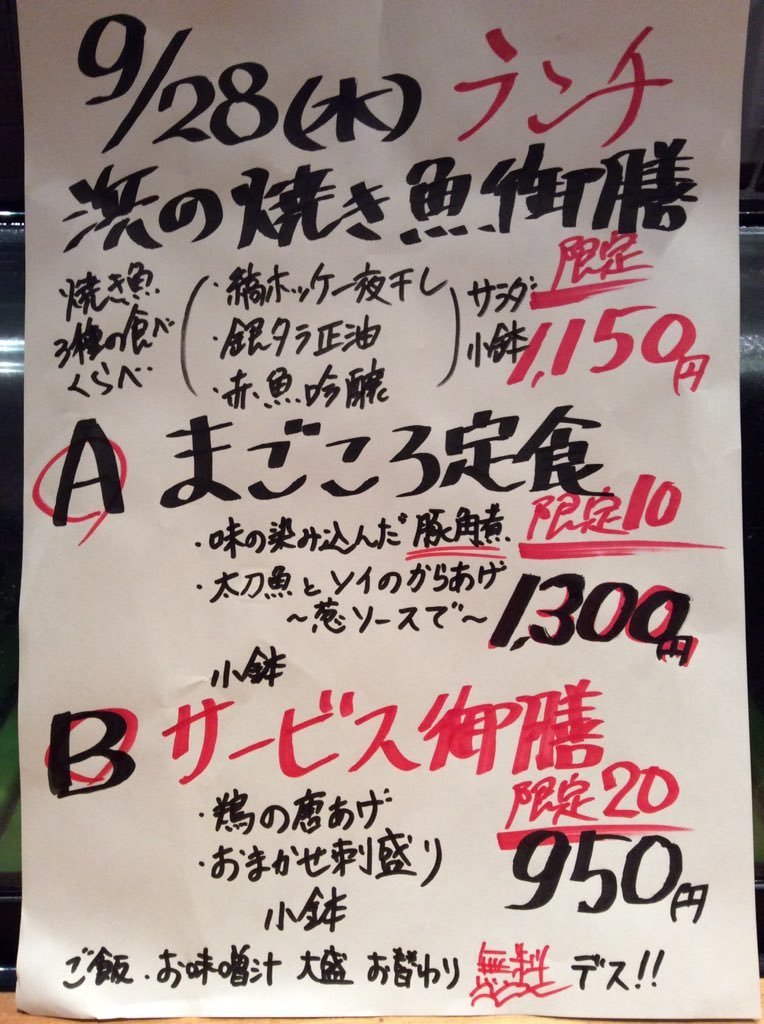 9/28(水) ランチ
浜の焼き魚御膳
焼き魚
3種の食べ
くらべ
・縞ホッケ一夜干し
・銀タラ正油
・赤魚吟醸
サラダ
小鉢
限定
1,150円
A まごころ定食
・味の染み込んだ豚角煮
限定10
・太刀魚とソイのからあげ
〜葱ソースで〜
1,300円
小鉢
B サービス御膳
限定20
・鶏の唐あげ
・おまかせ刺盛り
950円
小鉢
ご飯・お味噌汁 大盛 お替わり 無料 デス!!